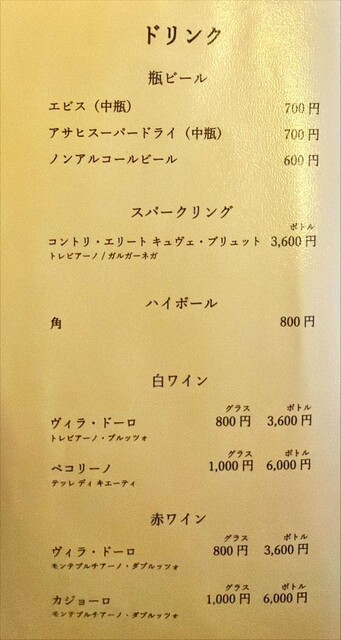 ドリンク
瓶ビール
エビス（中瓶） 700円
アサヒスーパードライ（中瓶） 700円
ノンアルコールビール 600円
スパークリング
ボトル
コントリ・エリート キュヴェ・ブリュット 3,600円
トレビアーノ / ガルガーネガ
ハイボール
角 800円
白ワイン
グラス ボトル
ヴィラ・ドーロ 800円 3,600円
トレビアーノ・ブルッツォ
グラス ボトル
ペコリーノ 1,000円 6,000円
テッレ ディ キエーティ
赤ワイン
グラス ボトル
ヴィラ・ドーロ 800円 3,600円
モンテプルチアーノ・ダブルッツォ
グラス ボトル
カジョーロ 1,000円 6,000円
モンテプルチアーノ・ダブルッツォ